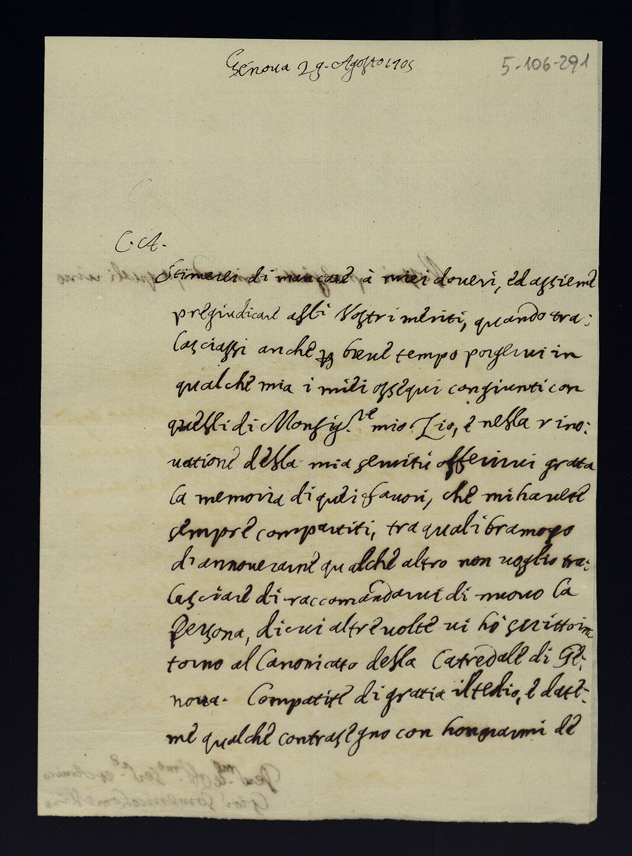 Genova 29. Agosto 1705
5-106-291
C. A.
Stimerei di mancare à miei doveri, ed assieme
pregiudicare alli Vostri meriti, quando tra:
lasciassi anche per breve tempo porgervi in
qualche mia i miei ossequi congiunti con
quelli di Monsig.re mio Zio, e nella rino:
vatione della mia servitù offerirvi grata
la memoria di quei favori, che mi havete
sempre compartiti, tra quali bramoso
di annoverarne qualche altro non voglio tra:
lasciare di raccomandarvi di nuovo la
Persona, di cui altre volte vi hò scritto in
torno al Canonicato della Catredale di Ge:
nova. Compatite di gratia il tedio, e date:
me qualche contrasegno con honorarmi de